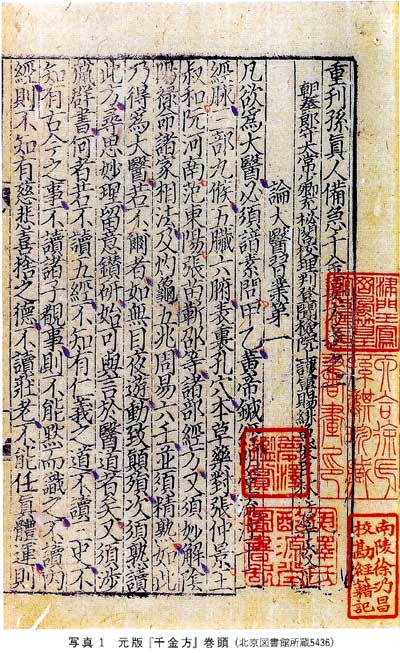 重刊孫眞人備急千金
朝奉郎守太常少卿充祕閣校理判登聞檢院上護軍賜緋
論大醫習業第一
凡欲爲大醫必須諳素問甲乙黃帝鍼
經脉三部九候五臟六腑表裏孔穴本草藥對張仲景王
叔和阮河南范東陽張苗靳邵等諸部經方又須妙解陰
陽祿命諸家相法及灼龜五兆周易六壬並須精熟如此
乃得爲大醫若不爾者如無目夜遊動致顛殞次須熟讀
此方尋思妙理留意鑽研始可與言於醫道者矣又須涉
獵群書何者若不讀五經不知有仁義之道不讀三史不
知有古今之事不讀諸子覩事則不能黙而識之不讀内
經則不知有慈悲喜捨之德不讀莊老不能任眞體運則
南陵徐乃昌
校勘經籍記
写真1 元版『千金方』巻頭（北京図書館所蔵5436）